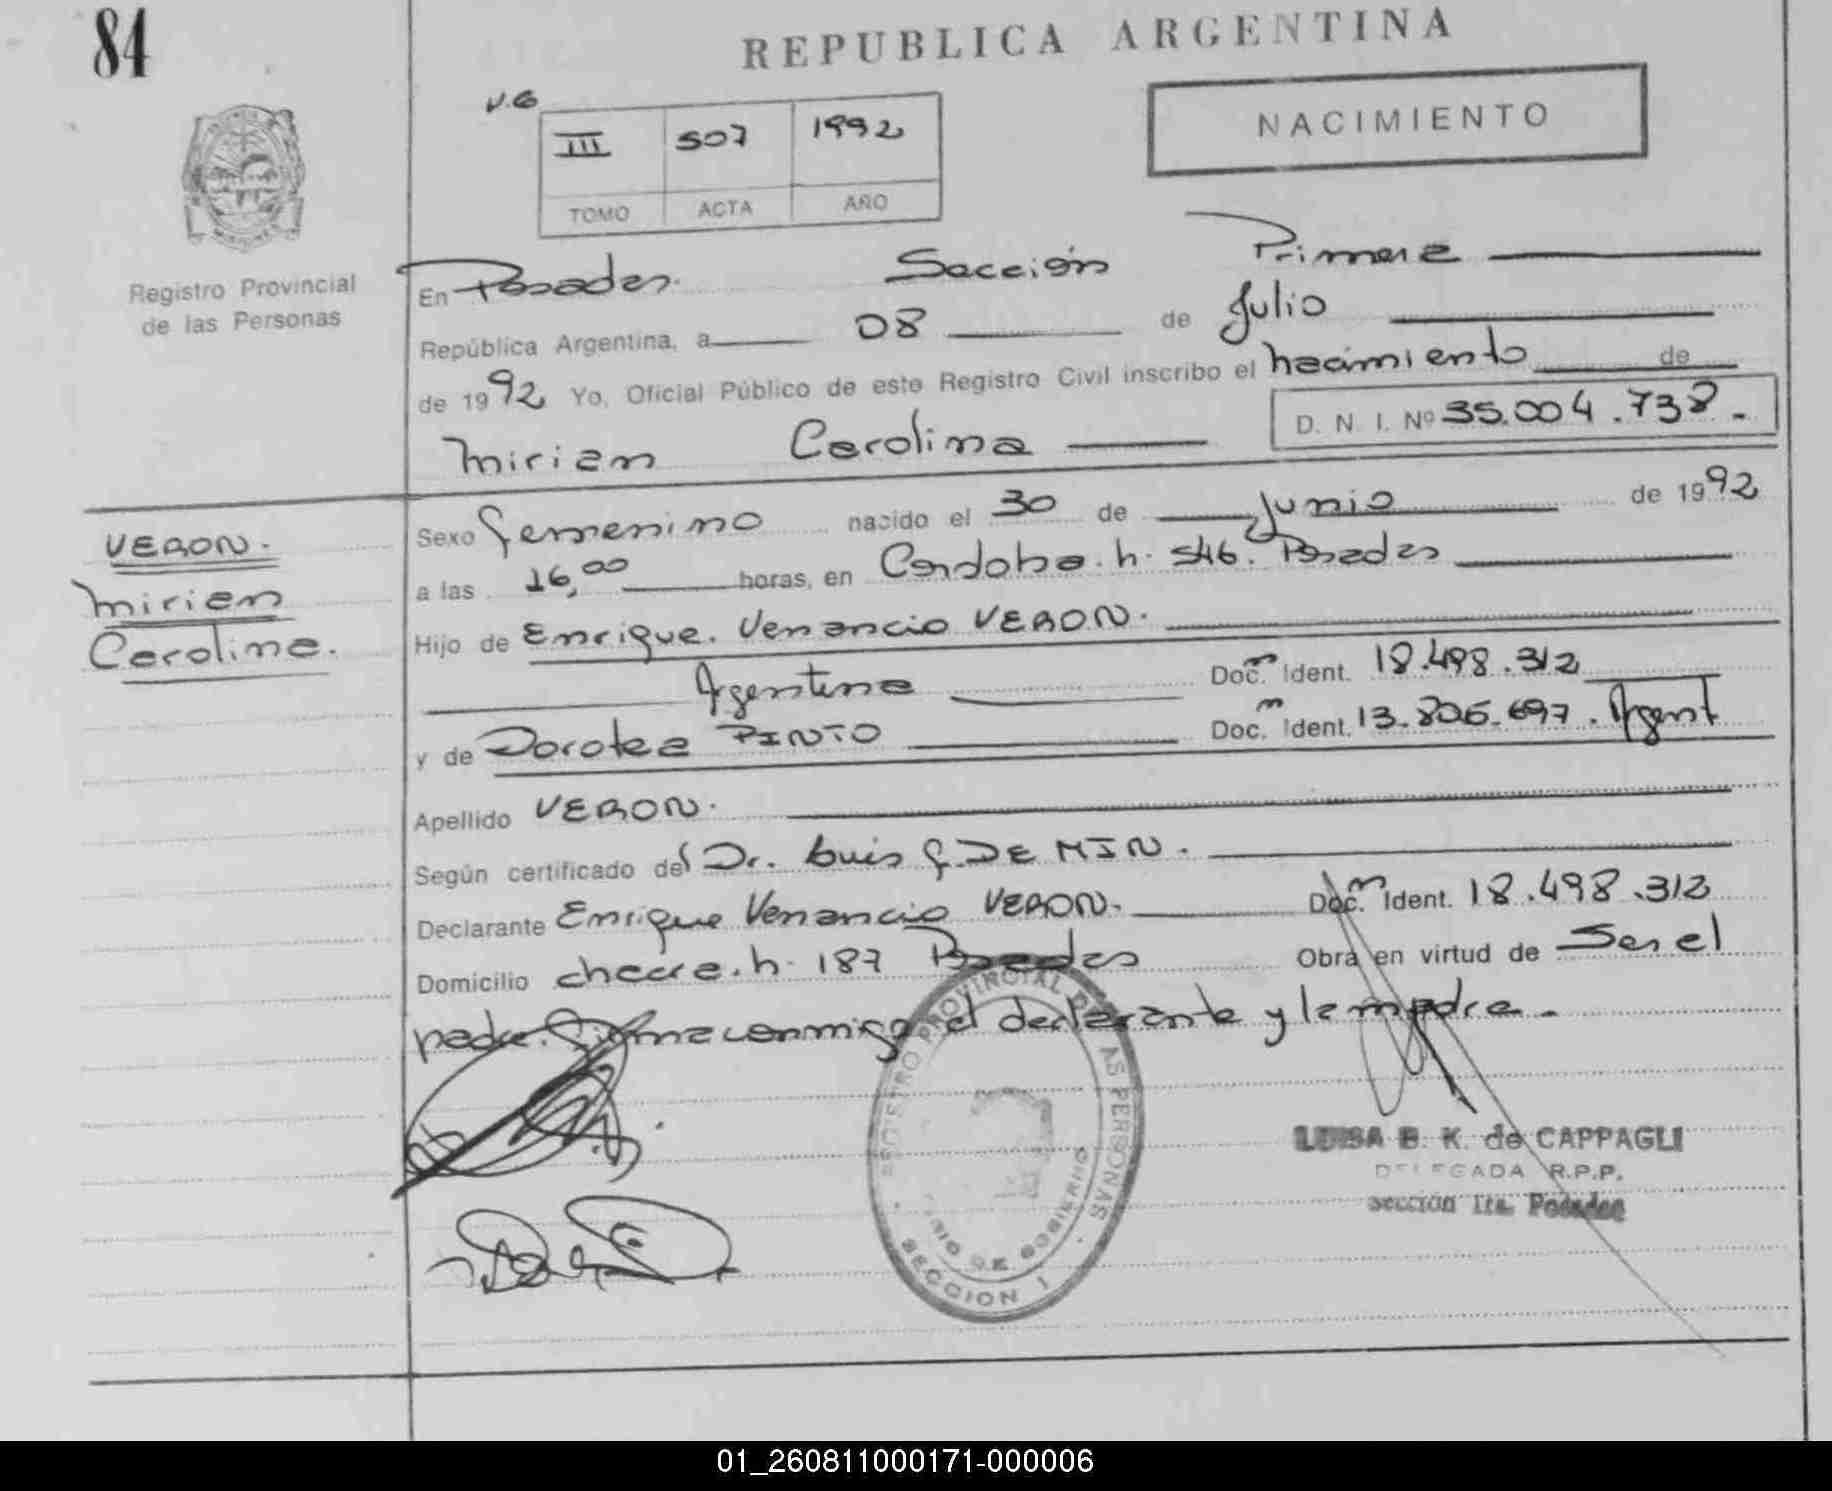 84
REPUBLICA ARGENTINA
V.G
III 507 1992
TOMO ACTA AÑO
NACIMIENTO
Registro Provincial
de las Personas
En Posadas. Sección Primera
República Argentina, a 08 de Julio
de 1992 Yo, Oficial Público de este Registro Civil inscribo el nacimiento de
D. N. I. Nº 35.004.738.-
Mirian Carolina
VERON.
Mirian
Carolina.
Sexo femenino nacido el 30 de Junio de 1992
a las 16,00 horas, en Cordoba. n. 546. Posadas
Hijo de Enrique. Venancio VERON.
Argentina Doc. m Ident. 18.498.312
y de Dorotea PINTO Doc. m Ident. 13.806.697. Argent
Apellido VERON.
Según certificado del Dr. Luis G. DE MIN.
Declarante Enrique Venancio VERON. Doc. m Ident. 18.498.312
Domicilio chacra. n. 187 Posadas Obra en virtud de Ser el
padre. Firma conmigo el declarante y la madre.-
REGISTRO PROVINCIAL DE LAS PERSONAS
RIO DE GOBIERNO
SECCION I
LUISA B. K. de CAPPAGLI
DELEGADA R.P.P.
Sección 1ra. Posadas
01_260811000171-000006